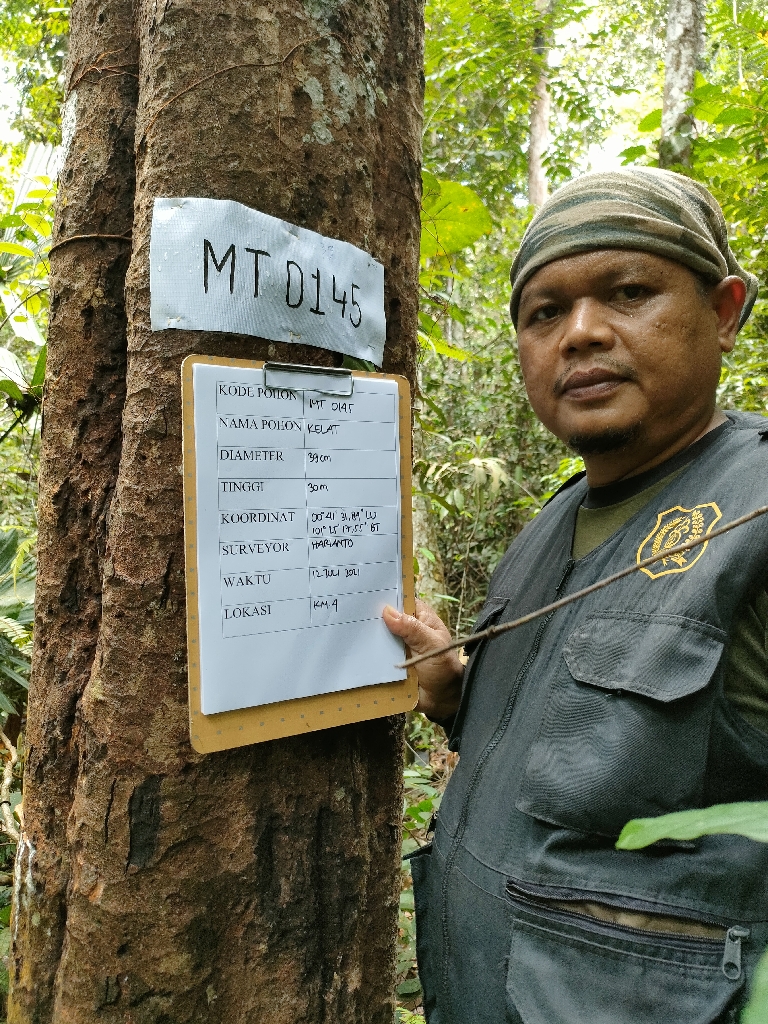 MT 0145
KODE POHON MT 0145
NAMA POHON KELAT
DIAMETER 39 cm
TINGGI 30 m
KOORDINAT 00° 41' 31,89" LU
101° 15' 17,55" BT
SURVEYOR HARIANTO
WAKTU 12 JULI 2021
LOKASI KM.4